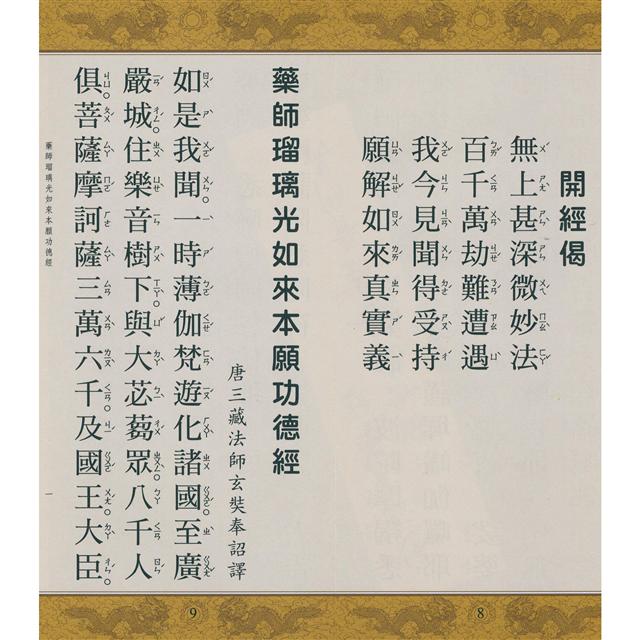 開經偈
無上甚深微妙法
百千萬劫難遭遇
我今見聞得受持
願解如來真實義
8
藥師瑠璃光如來本願功德經
唐三藏法師玄奘奉詔譯
如是我聞。一時薄伽梵遊化諸國。至廣
嚴城。住樂音樹下。與大苾蒭眾。八千人
俱。菩薩摩訶薩三萬六千。及國王。大臣。
藥師瑠璃光如來本願功德經
一
9